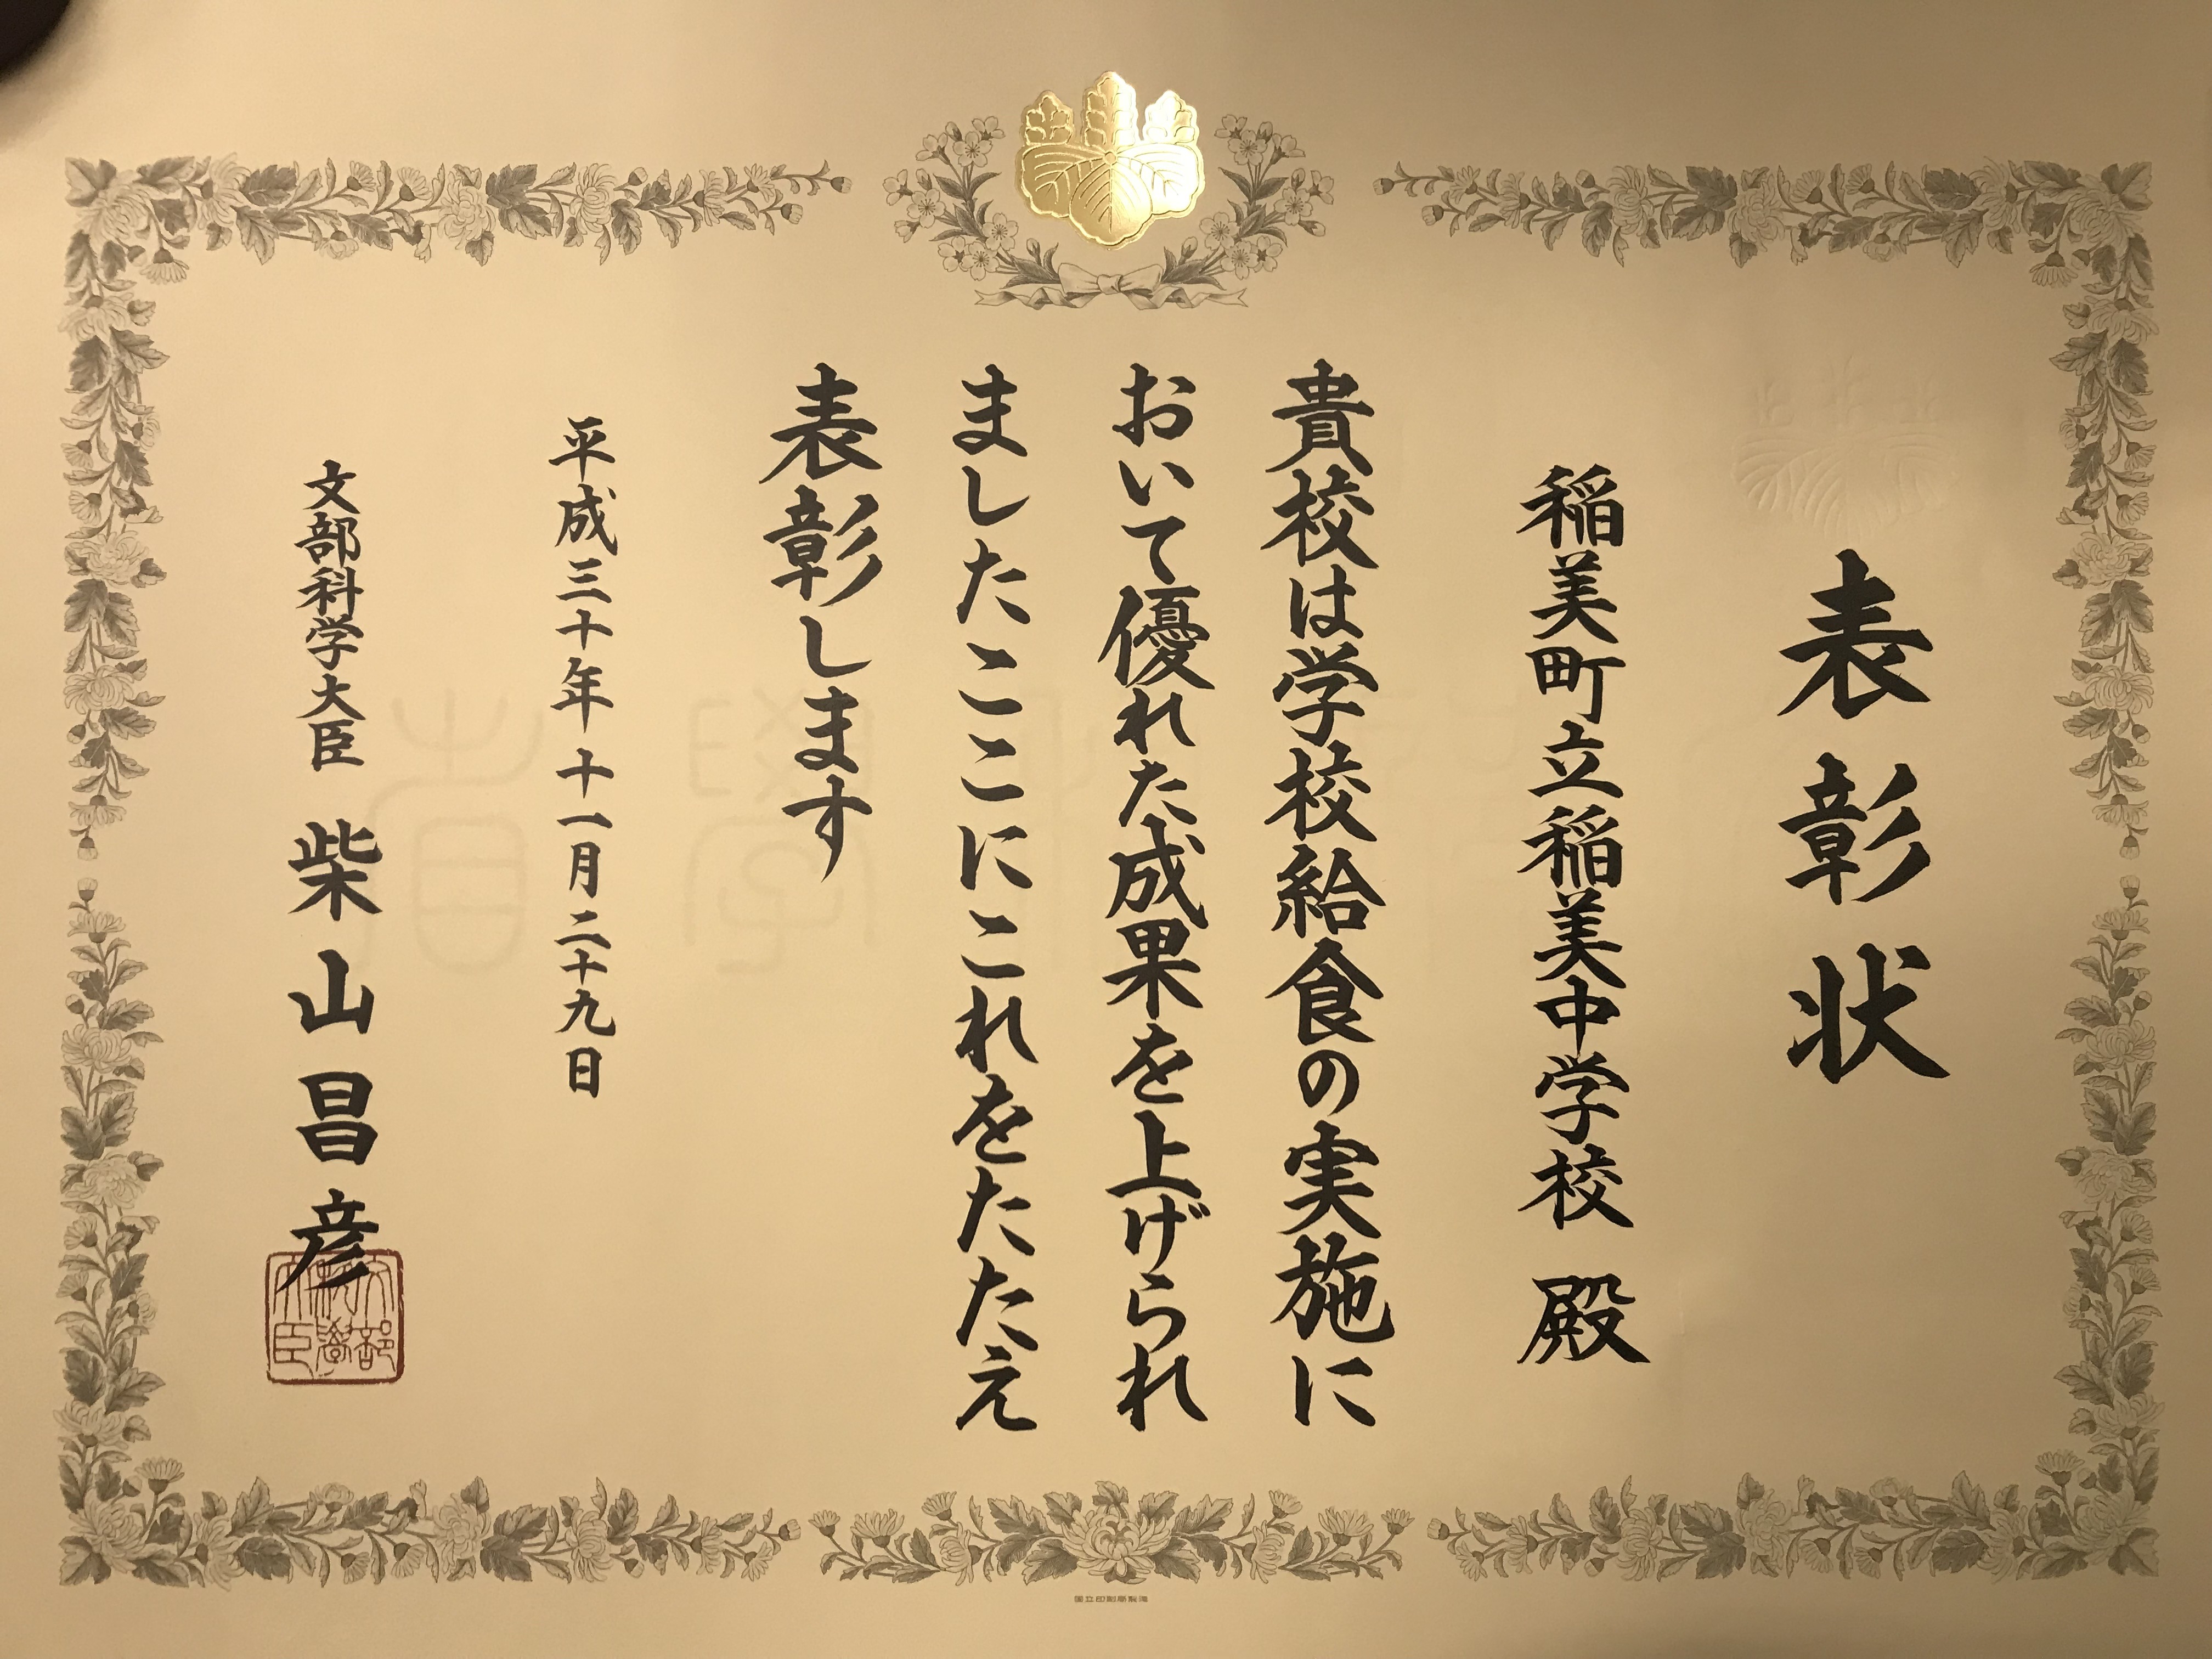 表彰状
稲美町立稲美中学校 殿
貴校は学校給食の実施に
おいて優れた成果を上げられ
ましたここにこれをたたえ
表彰します
平成三十年十一月二十九日
文部科学大臣 柴山昌彦
国立印刷局製造